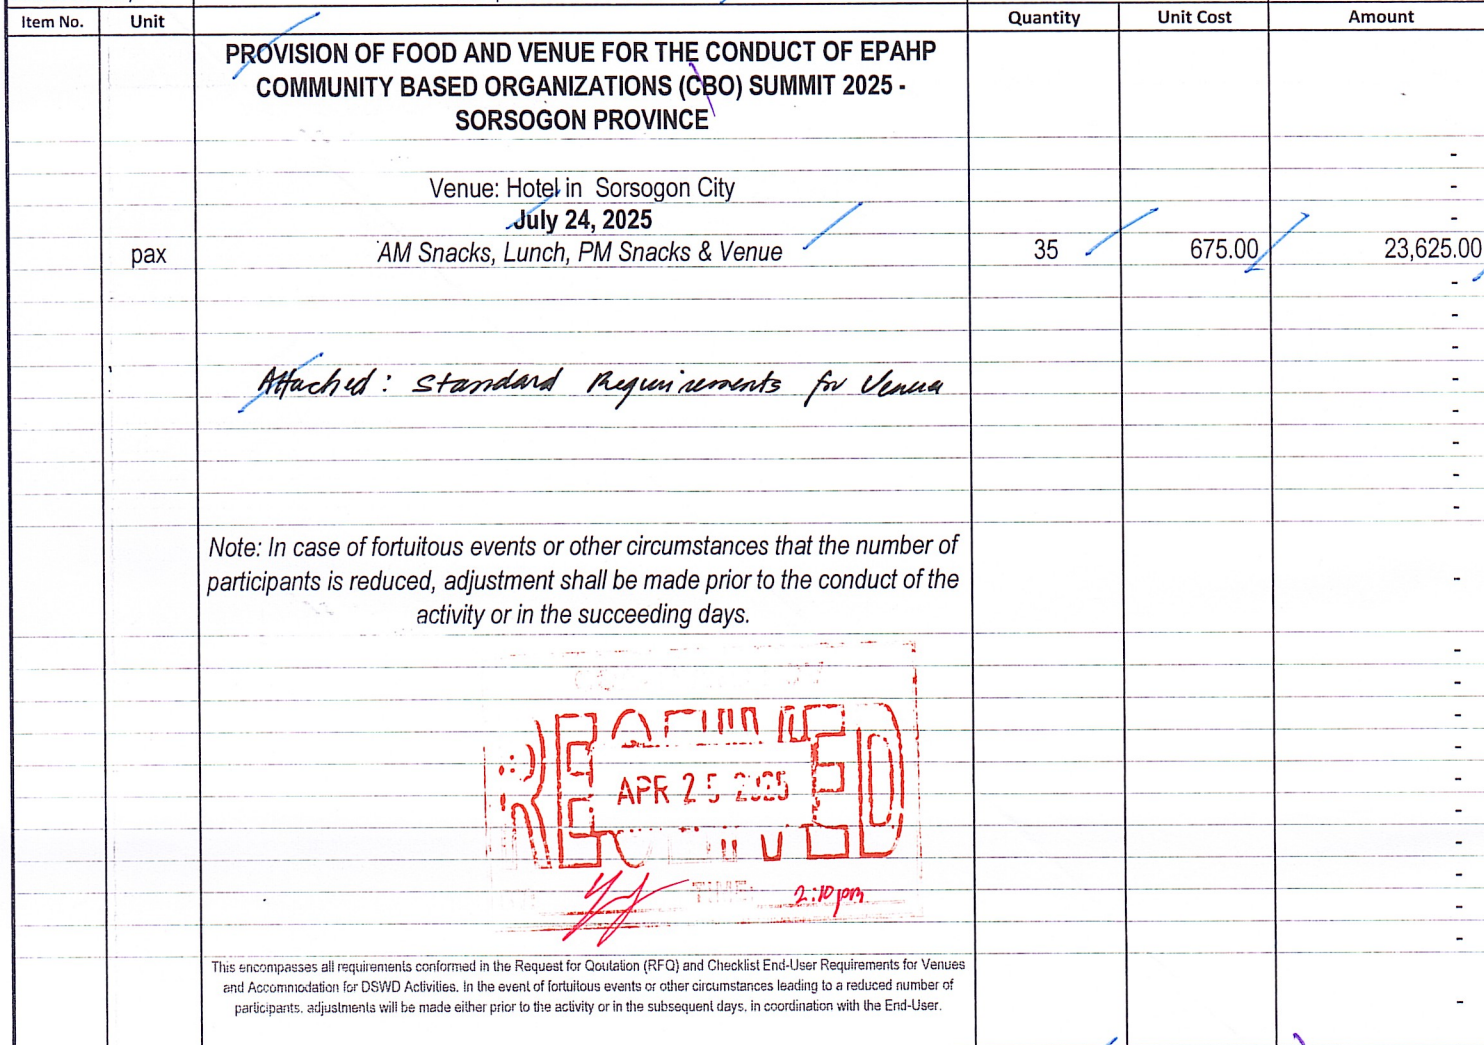 Item No. Unit Quantity Unit Cost Amount
PROVISION OF FOOD AND VENUE FOR THE CONDUCT OF EPAHP
COMMUNITY BASED ORGANIZATIONS (CBO) SUMMIT 2025 -
SORSOGON PROVINCE
-
Venue: Hotel in Sorsogon City -
July 24, 2025 -
pax AM Snacks, Lunch, PM Snacks & Venue 35 675.00 23,625.00
-
-
-
-
Attached: Standard Requirements for Venue
-
-
-
-
Note: In case of fortuitous events or other circumstances that the number of
participants is reduced, adjustment shall be made prior to the conduct of the -
activity or in the succeeding days.
-
-
-
-
APR 25 2025 -
-
-
TIME: 2:10pm -
-
-
This encompasses all requirements conformed in the Request for Qoutation (RFQ) and Checklist End-User Requirements for Venues
and Accommodation for DSWD Activities. In the event of fortuitous events or other circumstances leading to a reduced number of -
participants, adjustments will be made either prior to the activity or in the subsequent days, in coordination with the End-User.